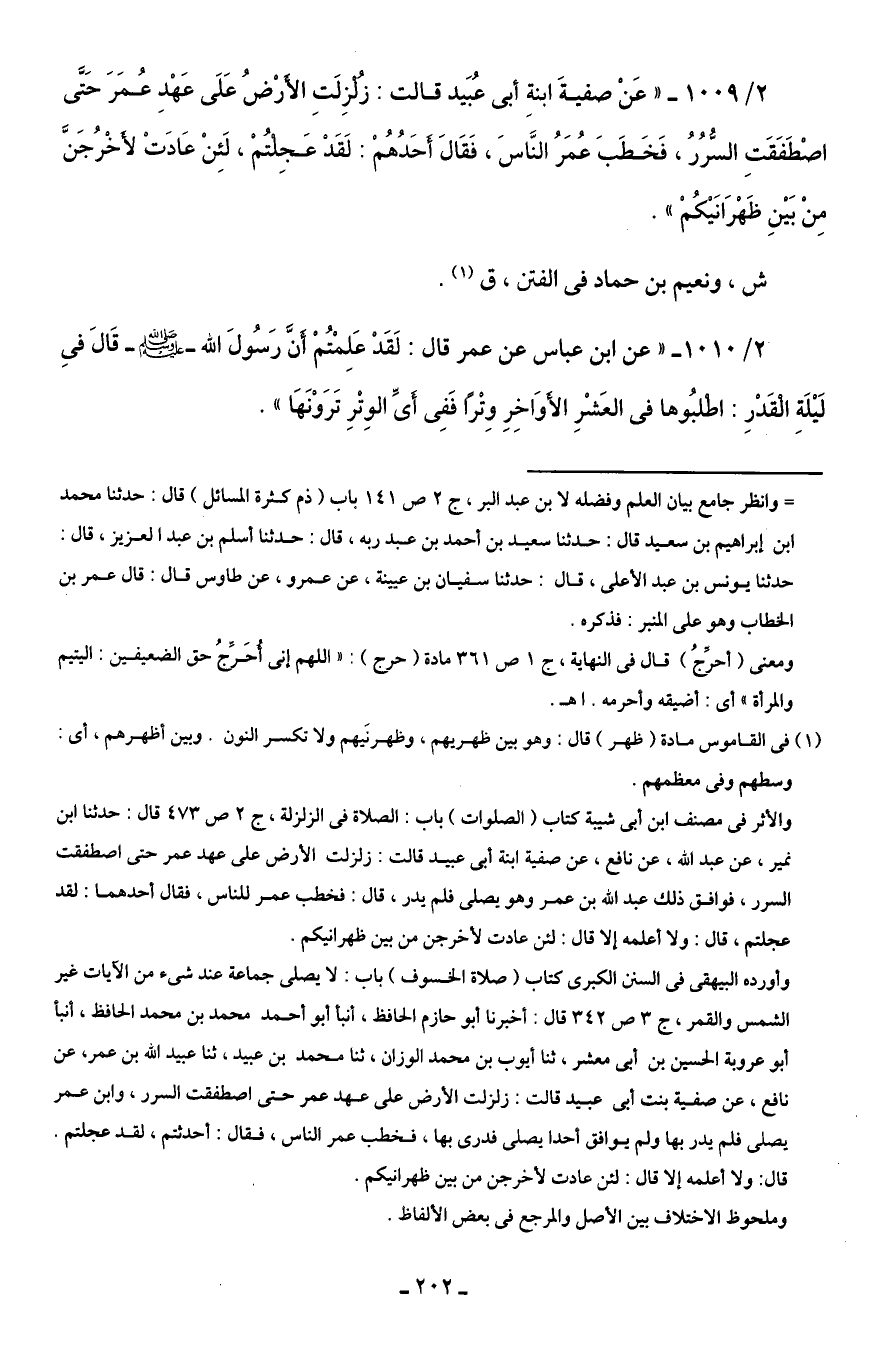 ٢/ ١٠٠٩ ـ « عَنْ صفيةَ ابنةِ أبى عُبَيد قالت : زُلْزِلَتِ الأَرْضُ عَلَى عَهْدِ عُمَرَ حَتَّى
اصْطَفَقَتِ السُّرُرُ ، فَخَطَبَ عُمَرُ النَّاسَ ، فَقَالَ أَحَدُهُمْ : لَقَدْ عَجِلتُمْ ، لَئِنْ عَادَتْ لأَخْرُجَنَّ
مِنْ بَيْنِ ظَهْرَانَيْكُمْ » .
ش ، ونعيم بن حماد فى الفتن ، ق (١) .
٢/ ١٠١٠ـ « عن ابن عباس عن عمر قال : لَقَدْ عَلِمْتُمْ أَنَّ رَسُولَ الله ـ ﷺ ـ قَالَ فِي
لَيْلَةِ الْقَدْرِ : اطْلُبُوها فى العَشْرِ الأَوَاخِرِ وِتْرًا فَفِى أَىِّ الوِتْرِ تَرَوْنَهَا » .
= وانظر جامع بيان العلم وفضله لا بن عبد البر ، ج ٢ ص ١٤١ باب ( ذم كثرة المسائل ) قال : حدثنا محمد
ابن إبراهيم بن سعيد قال : حدثنا سعيد بن أحمد بن عبد ربه ، قال : حدثنا أسلم بن عبد العزيز ، قال :
حدثنا يونس بن عبد الأعلى ، قال : حدثنا سفيان بن عيينة ، عن عمرو ، عن طاوس قال : قال عمر بن
الخطاب وهو على المنبر : فذكره .
ومعنى ( أحرِّجُ ) قال فى النهاية ، ج ١ ص ٣٦١ مادة ( حرج ) : « اللهم إنى أُحَرِّجُ حق الضعيفين : اليتيم
والمرأة » أى : أضيقه وأحرمه . ا هـ .
(١) فى القاموس مادة ( ظهر ) قال : وهو بين ظهريهم ، وظهرنَيهم ولا تكسر النون . وبين أظهرهم ، أى :
وسطهم وفى معظمهم .
والأثر فى مصنف ابن أبى شيبة كتاب ( الصلوات ) باب : الصلاة فى الزلزلة ، ج ٢ ص ٤٧٣ قال : حدثنا ابن
نمير ، عن عبد الله ، عن نافع ، عن صفية ابنة أبى عبيد قالت : زلزلت الأرض على عهد عمر حتى اصطفقت
السرر ، فوافق ذلك عبد الله بن عمر وهو يصلى فلم يدر ، قال : فخطب عمر للناس ، فقال أحدهما : لقد
عجلتم ، قال : ولا أعلمه إلا قال : لئن عادت لأخرجن من بين ظهرانيكم .
وأورده البيهقى فى السنن الكبرى كتاب ( صلاة الخسوف ) باب : لا يصلى جماعة عند شىء من الآيات غير
الشمس والقمر ، ج ٣ ص ٣٤٢ قال : أخبرنا أبو حازم الحافظ ، أنبأ أبو أحمد محمد بن محمد الحافظ ، أنبأ
أبو عروبة الحسين بن أبى معشر ، ثنا أيوب بن محمد الوزان ، ثنا محمد بن عبيد ، ثنا عبيد الله بن عمر، عن
نافع ، عن صفية بنت أبى عبيد قالت : زلزلت الأرض على عهد عمر حتى اصطفقت السرر ، وابن عمر
يصلى فلم يدر بها ولم يوافق أحدا يصلى فدرى بها ، فخطب عمر الناس ، فقال : أحدثتم ، لقد عجلتم .
قال: ولا أعلمه إلا قال : لئن عادت لأخرجن من بين ظهرانيكم .
وملحوظ الاختلاف بين الأصل والمرجع فى بعض الألفاظ .
ـ ٢٠٢ ـ